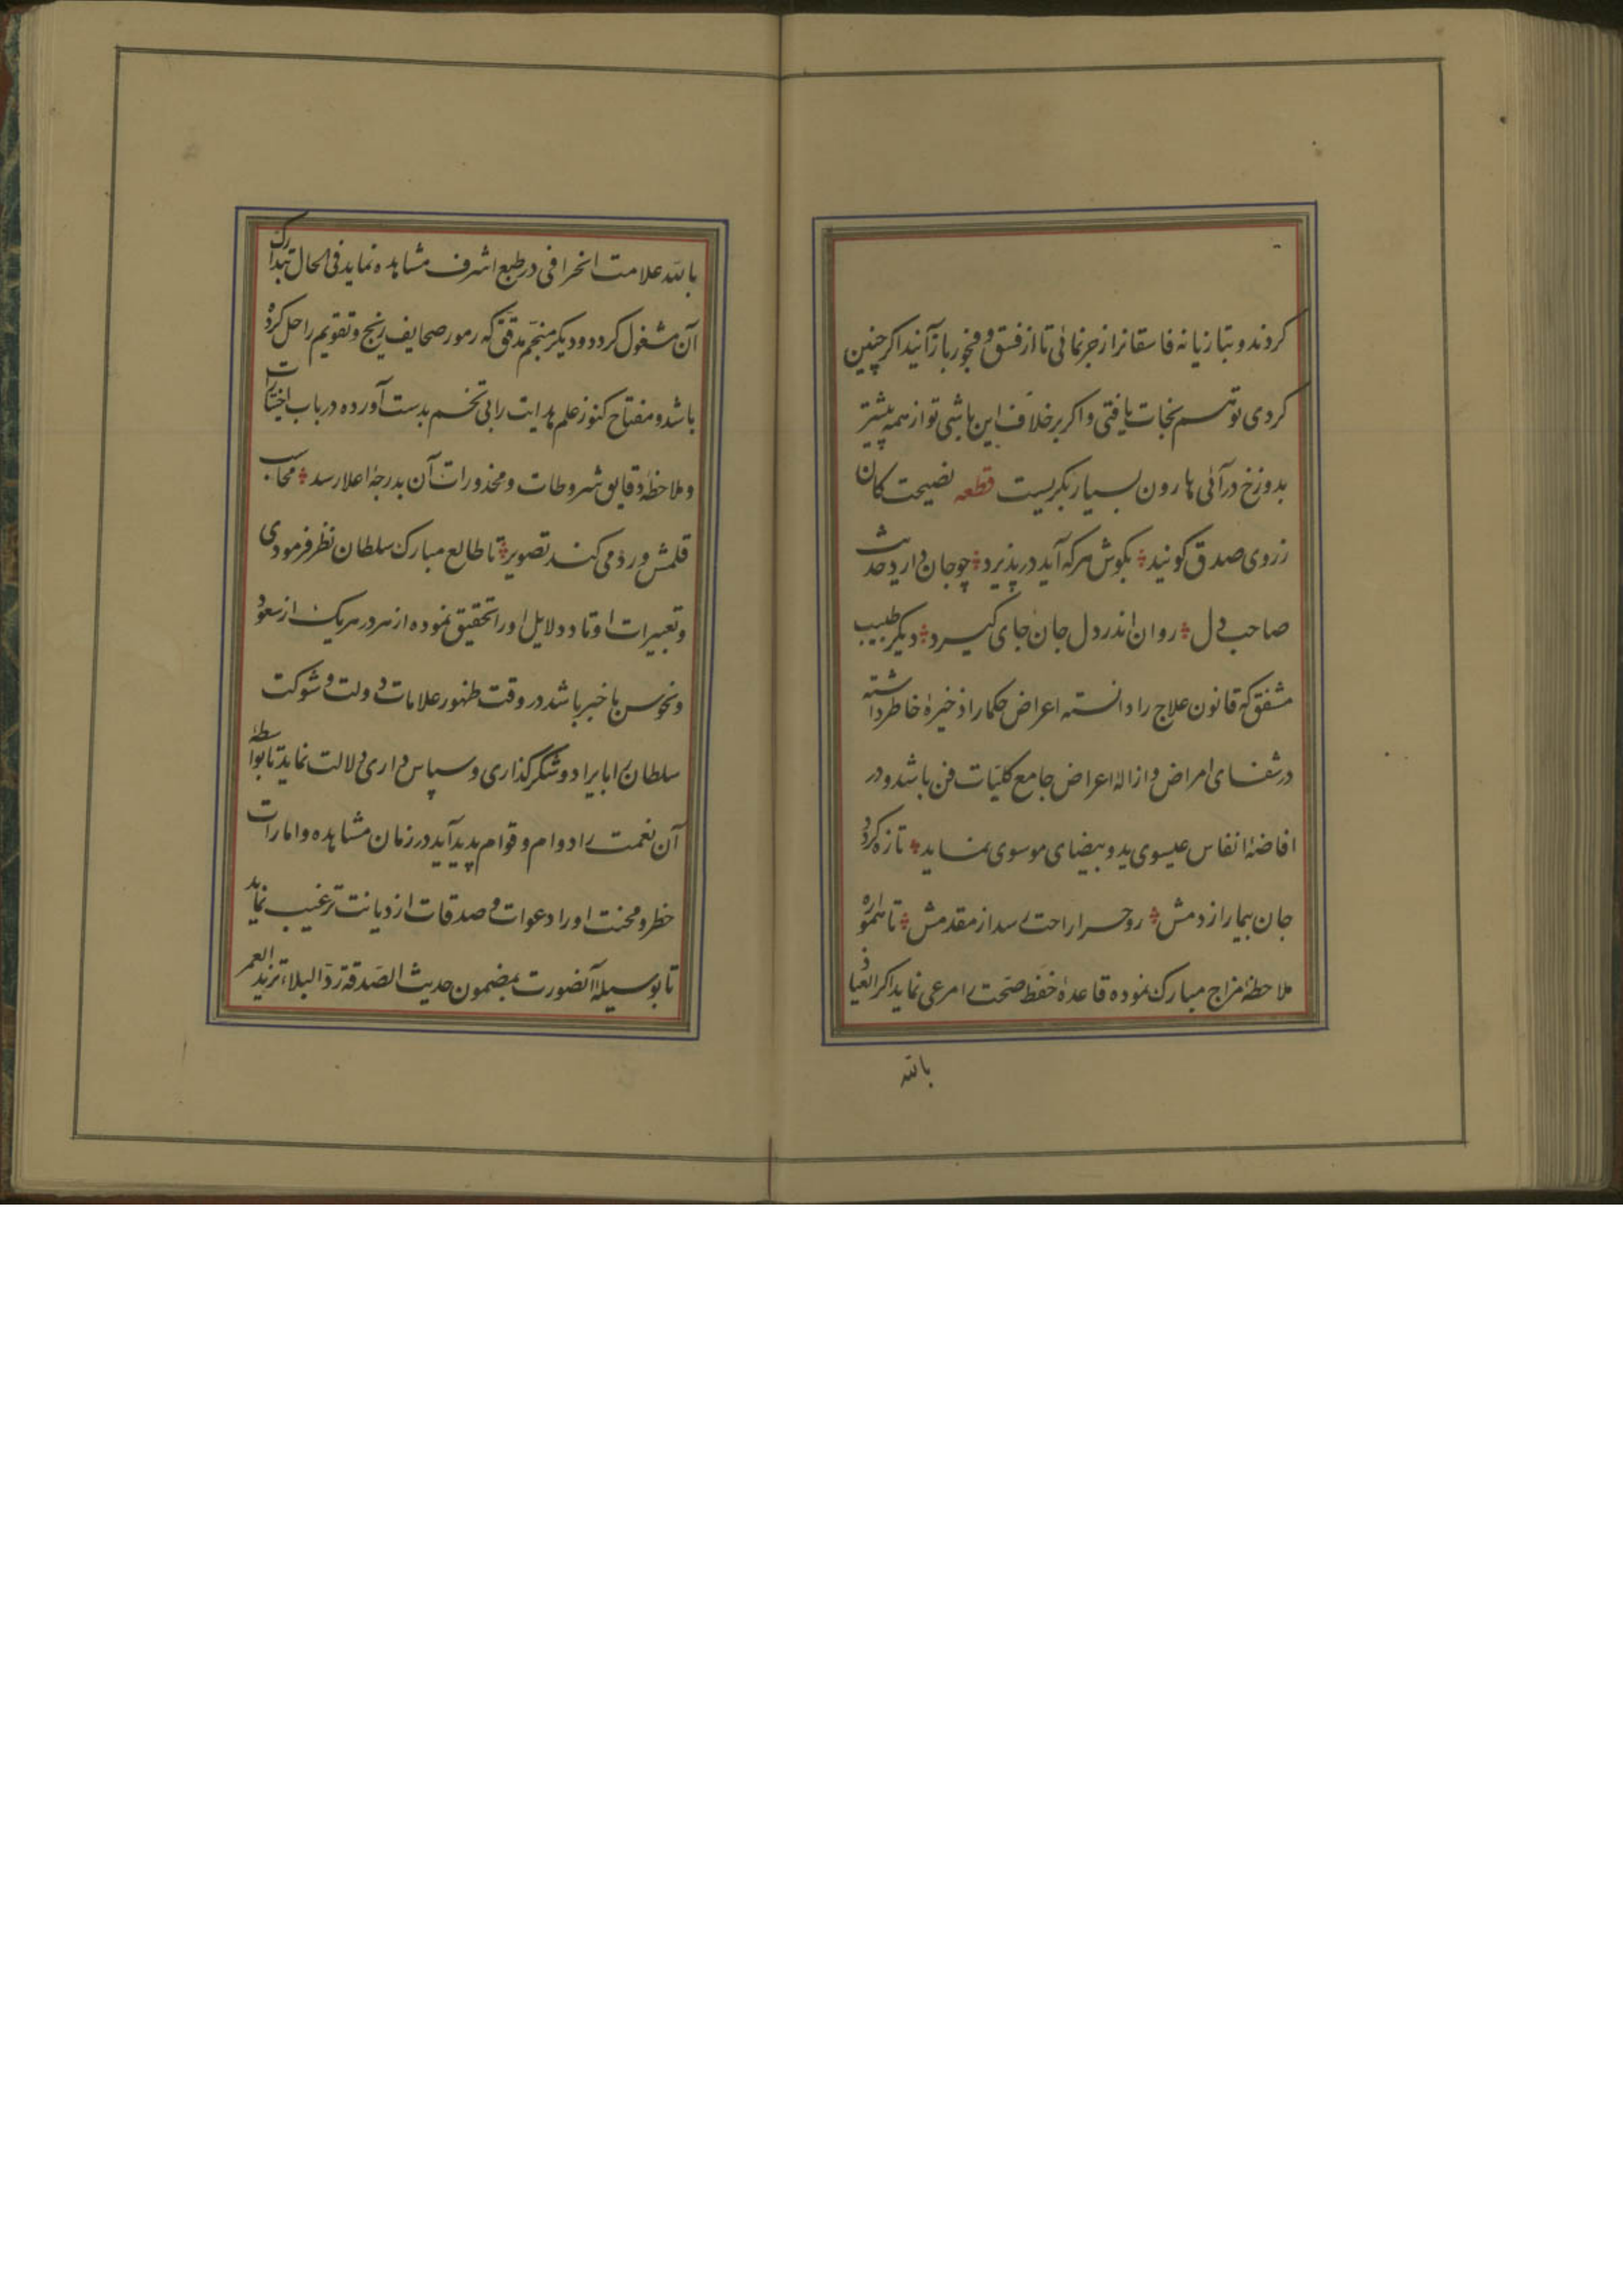 کردند و بتازیانه فاسقانرا زجر نمائی تا از فسق و فجور باز آنید اکر چنین
کردی تو هم نجات یافتی و اکر برخلاف این باشی تو از همه پیشتر
بدوزخ درآئی هارون بسیار بکریست قطعه نصیحت کان
ز روی صدق کویند بکوش هر که آید در پذیرد چو جان دارد حدیث
صاحب دل روان اندر دل جان جای کیرد دیکر طبیب
مشفق که قانون علاج را دانسته اعراض حکما را ذخیرهٔ خاطر داشته
در شفای امراض و ازالهٔ اعراض جامع کلیّات فن باشد و در
افاضهٔ انفاس عیسوی ید و بیضای موسوی نماید تازه کردد
جان بیمار از دمش روح را راحت رسد از مقدمش تا همواره
ملاحظهٔ مزاج مبارک نموده قاعدهٔ حفظ صحّت را مرعی نماید اکر العیاذ
باللّه
باللّه علامت انحرافی در طبع اشرف مشاهده نماید فی الحال بتدارک
آن مشغول کردد و دیکر منجّم مدقّق که رموز صحایف زیج و تقویم را حل کرده
باشد و مفتاح کنوز علم هدایت را بی تخسم بدست آورده در باب اختیارات
و ملاحظهٔ دقایق شروطات و محذورات آن بدرجهٔ اعلا رسد محاسب
قلمش ورد می کند تصویر تا طالع مبارک سلطان نظر فرمودی
و تعبیرات اوتاد و دلایل اورا تحقیق نموده از هر در هریک از سعود
و نحوس باخبر باشد در وقت ظهور علامات دولت و شوکت
سلطان را بایراد و شکر کذاری و سپاس داری دلالت نماید تا بواسطهٔ
آن نعمت را دوام و قوام پدید آید در زمان مشاهده و امارات
خطر و محنت اورا دعوات و صدقات از دیانت ترغیب نماید
تا بوسیلهٔ آنصورت بمضمون حدیث الصّدقة ردّ البلاء تزید العمر